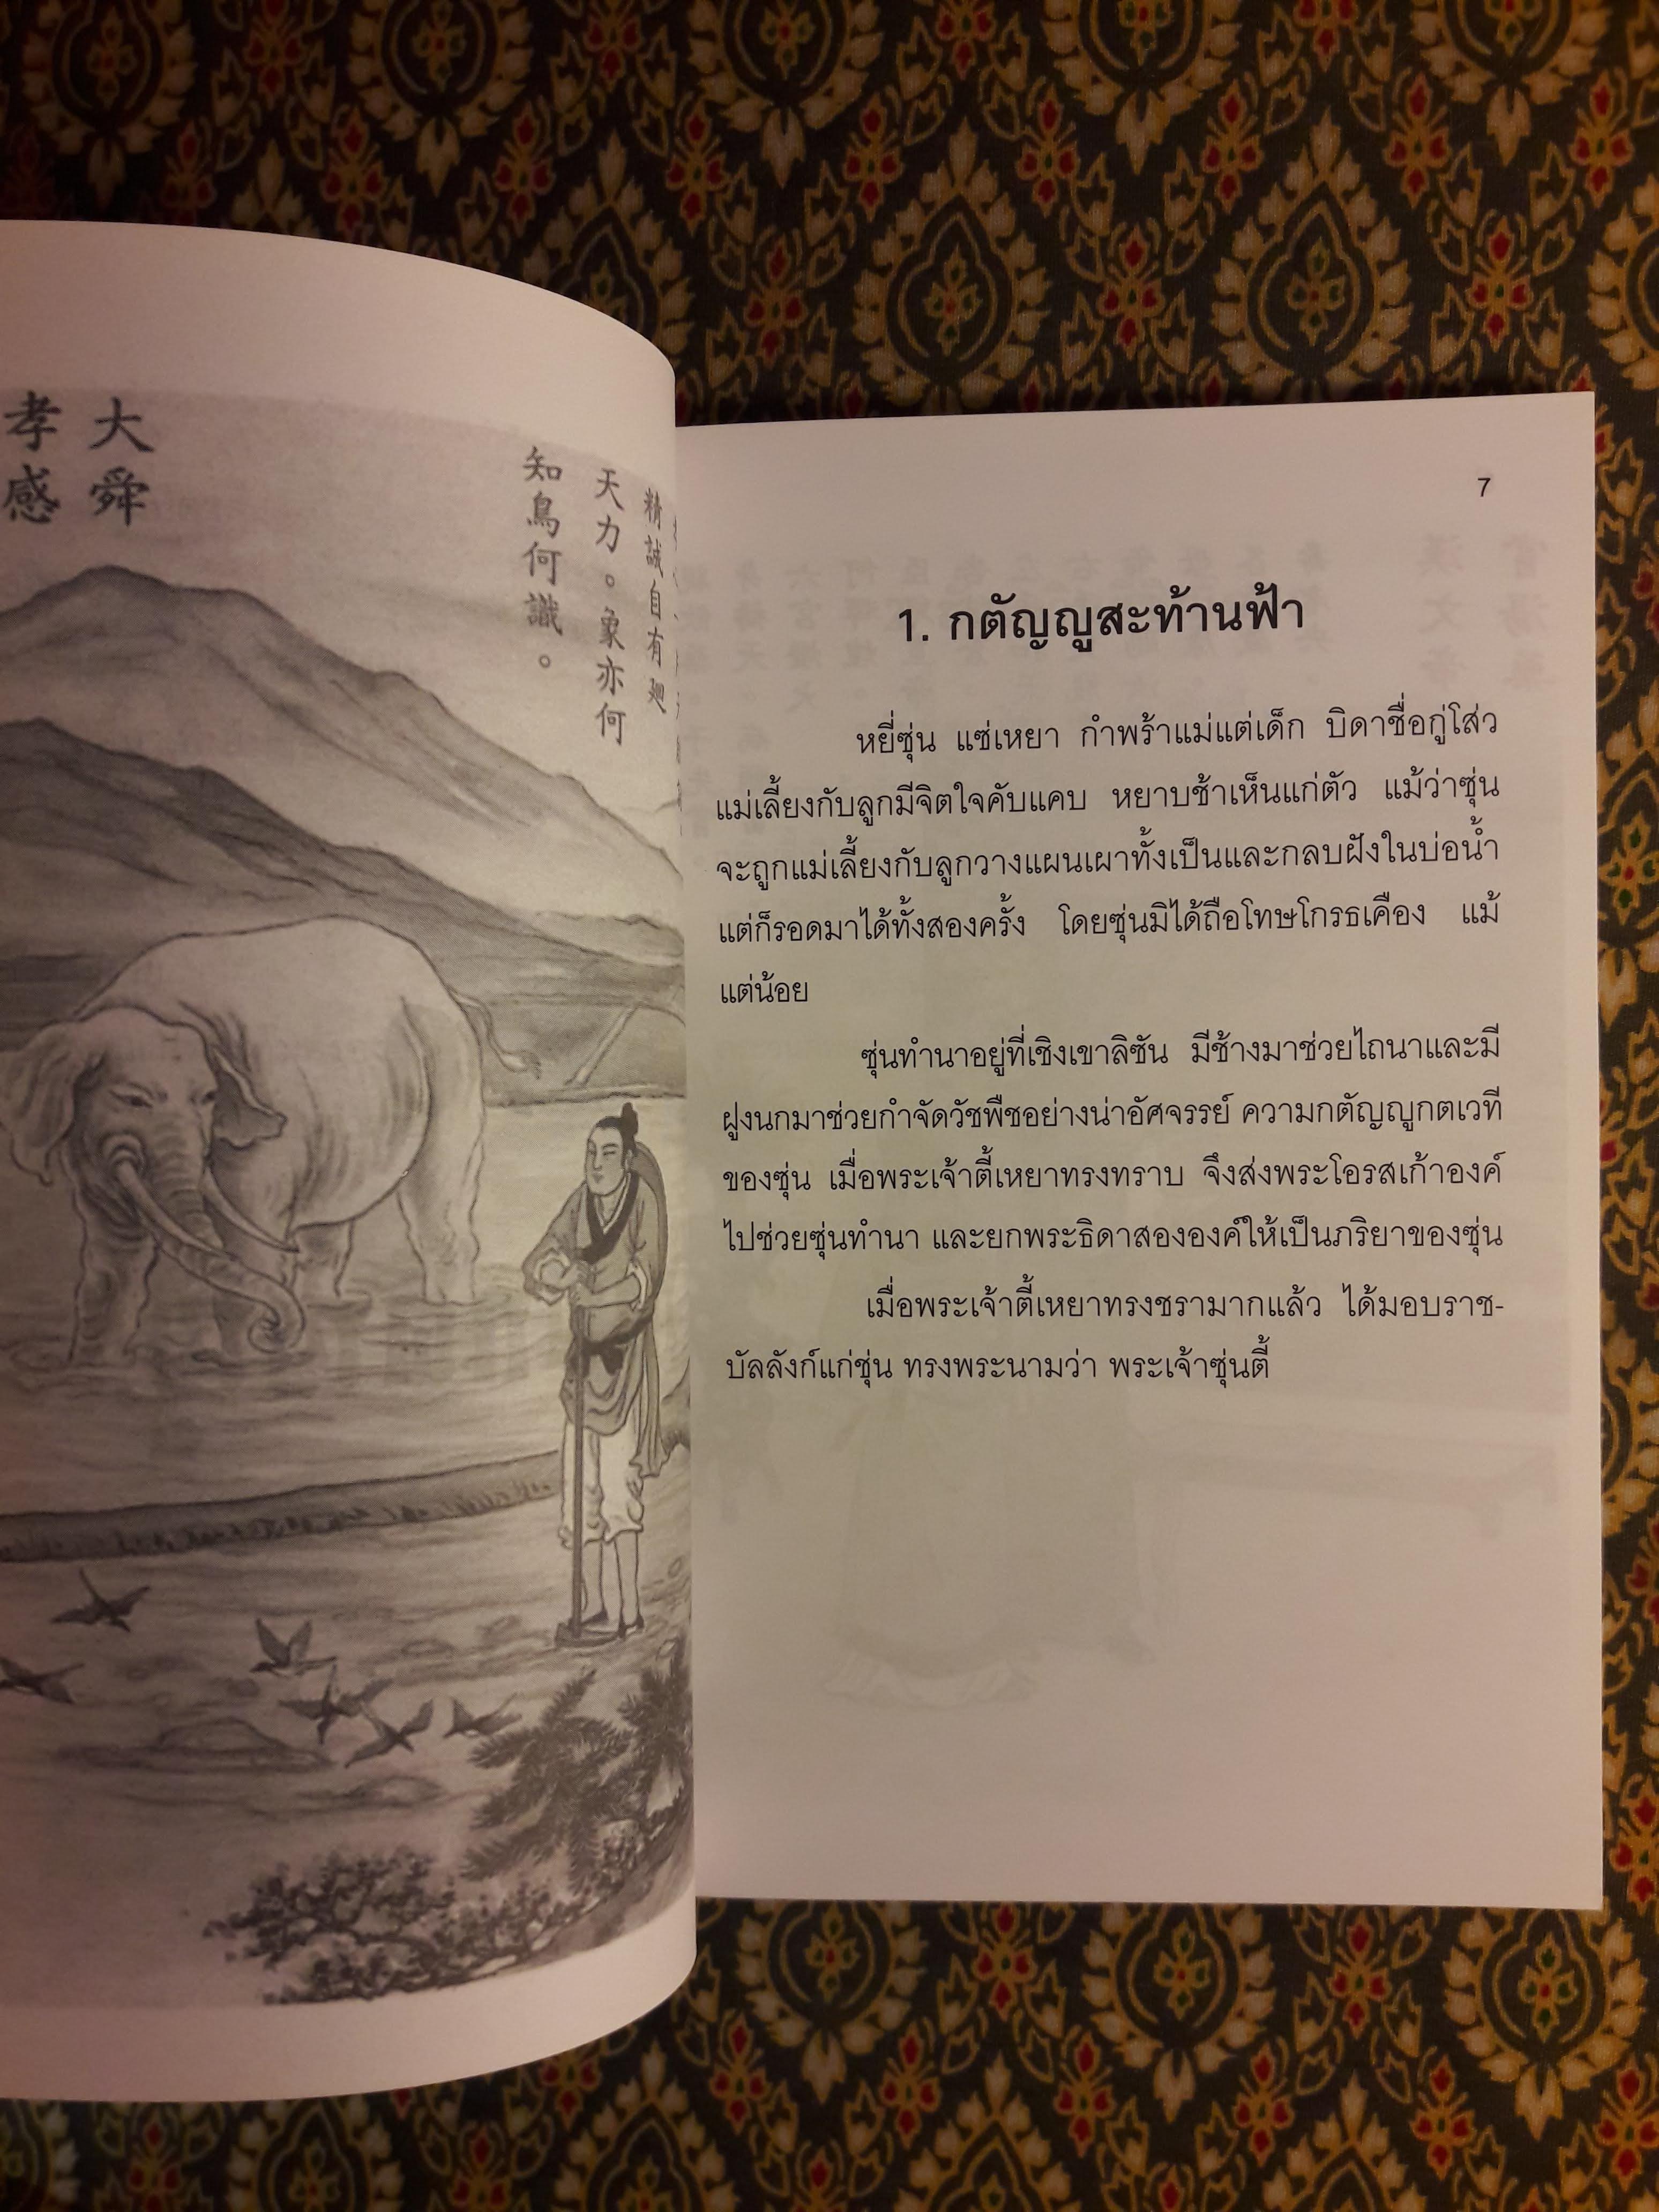 大舜
孝感
精誠自有
天力。象亦何
知鳥何識。
7
1. กตัญญูสะท้านฟ้า
หยี่ซุ่น แซ่เหยา กำพร้าแม่แต่เด็ก บิดาชื่อกู่โส่ว
แม่เลี้ยงกับลูกมีจิตใจคับแคบ หยาบช้าเห็นแก่ตัว แม้ว่าซุ่น
จะถูกแม่เลี้ยงกับลูกวางแผนเผาทั้งเป็นและกลบฝังในบ่อน้ำ
แต่ก็รอดมาได้ทั้งสองครั้ง โดยซุ่นมิได้ถือโทษโกรธเคือง แม้
แต่น้อย
ซุ่นทำนาอยู่ที่เชิงเขาลิซัน มีช้างมาช่วยไถนาและมี
ฝูงนกมาช่วยกำจัดวัชพืชอย่างน่าอัศจรรย์ ความกตัญญูกตเวที
ของซุ่น เมื่อพระเจ้าตี้เหยาทรงทราบ จึงส่งพระโอรสเก้าองค์
ไปช่วยซุ่นทำนา และยกพระธิดาสององค์ให้เป็นภริยาของซุ่น
เมื่อพระเจ้าตี้เหยาทรงชรามากแล้ว ได้มอบราช-
บัลลังก์แก่ซุ่น ทรงพระนามว่า พระเจ้าซุ่นตี้